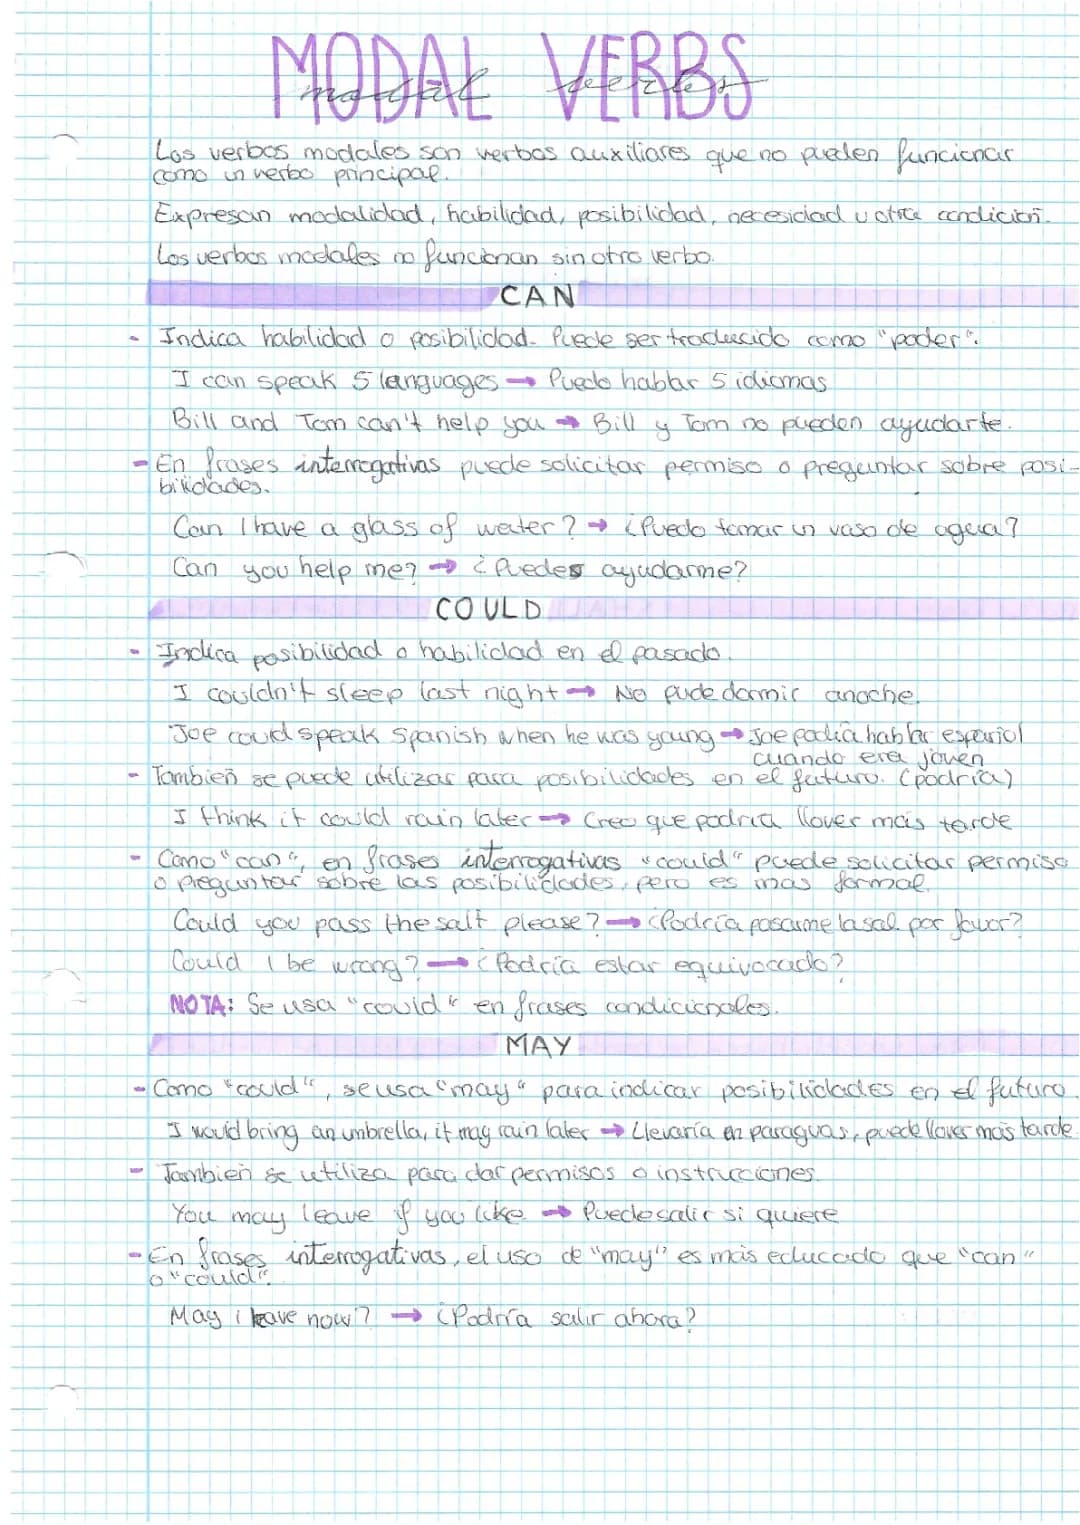 MODAL VERBS
modal verbs
Los verbos modales son verbos auxiliares que no pueden funcionar
como un verbo principal.
Expresan modalidad, habilidad, posibilidad, necesidad u otra condición.
Los verbos modales no funcionan sin otro verbo.
CAN
- Indica habilidad o posibilidad. Puede ser traducido como "poder".
I can speak 5 languages → Puedo hablar 5 idiomas
Bill and Tom can't help you → Bill y Tom no pueden ayudarte.
- En frases interrogativas puede solicitar permiso o preguntar sobre posi-
bilidades.
Can I have a glass of water? → ¿Puedo tomar un vaso de agua?
Can you help me? → ¿Puedes ayudarme?
COULD
- Indica posibilidad o habilidad en el pasado.
I couldn't sleep last night → No pude dormir anoche.
Joe could speak Spanish when he was young → Joe podía hablar español
cuando era joven
- También se puede utilizar para posibilidades en el futuro. (podría)
I think it could rain later → Creo que podría llover más tarde
- Como "can", en frases interrogativas "could" puede solicitar permiso
o preguntar sobre las posibilidades, pero es mas formal.
Could you pass the salt please? → ¿Podría pasarme la sal por favor?
Could I be wrong? → ¿Podría estar equivocado?
NOTA: Se usa "could" en frases condicionales.
MAY
- Como "could", se usa "may" para indicar posibilidades en el futuro.
I would bring an umbrella, it may rain later → Llevaría un paraguas, puede llover más tarde.
- También se utiliza para dar permisos o instrucciones.
You may leave if you like → Puede salir si quiere
- En frases interrogativas, el uso de "may" es más educado que "can"
o "could".
May i leave now? → ¿Podría salir ahora?